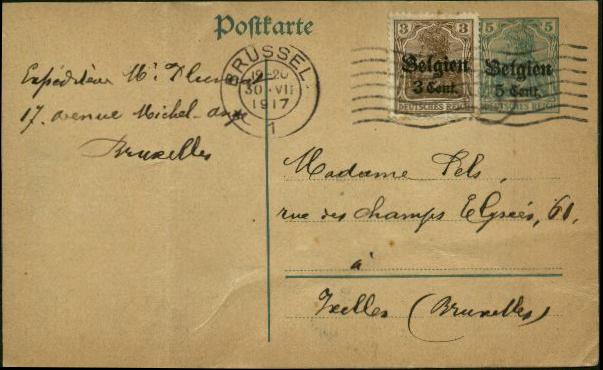 Postkarte
BRÜSSEL
19-20
30 VII
1917
1
3 3
Belgien
3 Cent.
DEUTSCHES REICH
5 5
Belgien
5 Cent.
DEUTSCHES REICH
Expéditeur Mr.
17. avenue Michel-ange
Bruxelles
Madame Pels,
rue des Champs Elysées, 61,
à
Ixelles (Bruxelles)